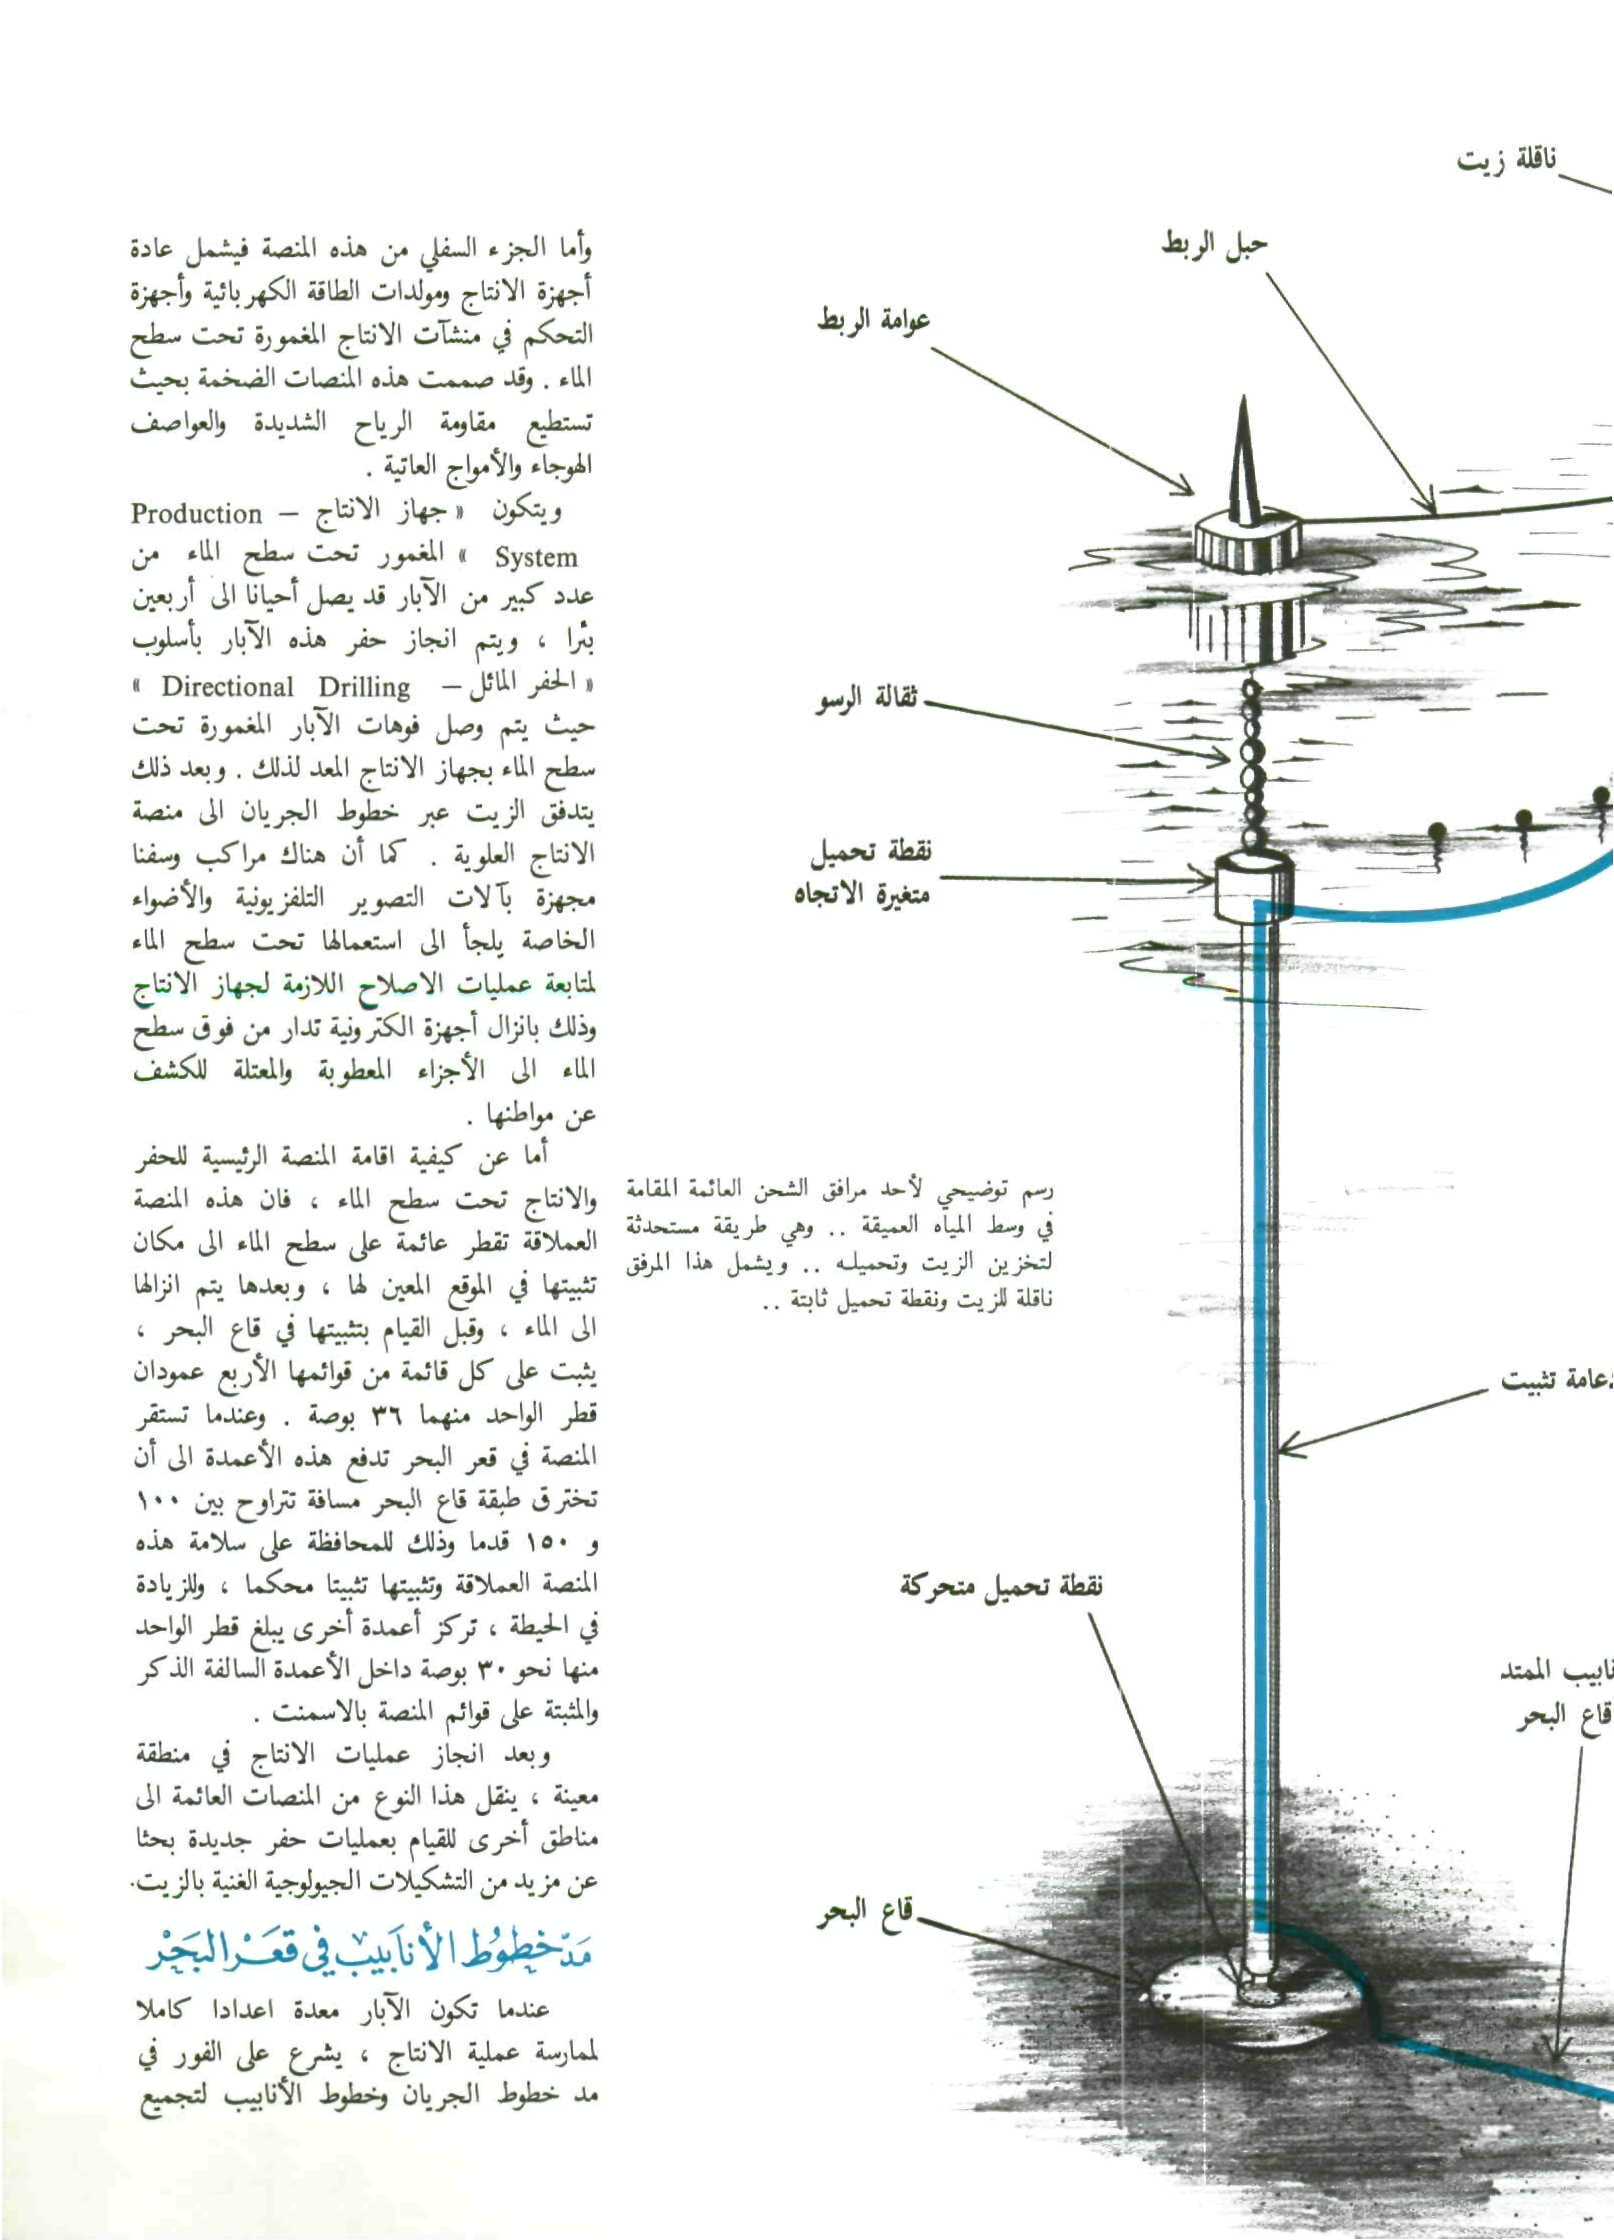 ناقلة زيت
حبل الربط
عوامة الربط
ثقالة الرسو
نقطة تحميل
متغيرة الاتجاه
دعامة تثبيت
نقطة تحميل متحركة
قاع البحر
الممتد
قاع البحر
رسم توضيحي لأحد مرافق الشحن العائمة المقامة
في وسط المياه العميقة .. وهي طريقة مستحدثة
لتخزين الزيت وتحميله .. ويشمل هذا المرفق
ناقلة للزيت ونقطة تحميل ثابتة ..
وأما الجزء السفلي من هذه المنصة فيشمل عادة
أجهزة الانتاج ومولدات الطاقة الكهربائية وأجهزة
التحكم في منشآت الانتاج المغمورة تحت سطح
الماء . وقد صممت هذه المنصات الضخمة بحيث
تستطيع مقاومة الرياح الشديدة والعواصف
الهوجاء والأمواج العاتية .
ويتكون « جهاز الانتاج – Production
System » المغمور تحت سطح الماء من
عدد كبير من الآبار قد يصل أحيانا الى أربعين
بئرا ، ويتم انجاز حفر هذه الآبار بأسلوب
« الحفر المائل – Directional Drilling »
حيث يتم وصل فوهات الآبار المغمورة تحت
سطح الماء بجهاز الانتاج المعد لذلك . وبعد ذلك
يتدفق الزيت عبر خطوط الجريان الى منصة
الانتاج العلوية . كما أن هناك مراكب وسفنا
مجهزة بآلات التصوير التلفزيونية والأضواء
الخاصة يلجأ الى استعمالها تحت سطح الماء
لمتابعة عمليات الاصلاح اللازمة لجهاز الانتاج
وذلك بانزال أجهزة الكترونية تدار من فوق سطح
الماء الى الأجزاء المعطوبة والمعتلة للكشف
عن مواطنها .
أما عن كيفية اقامة المنصة الرئيسية للحفر
والانتاج تحت سطح الماء ، فان هذه المنصة
العملاقة تقطر عائمة على سطح الماء الى مكان
تثبيتها في الموقع المعين لها ، وبعدها يتم انزالها
الى الماء ، وقبل القيام بتثبيتها في قاع البحر ،
يثبت على كل قائمة من قوائمها الأربع عمودان
قطر الواحد منهما ٣٦ بوصة . وعندما تستقر
المنصة في قعر البحر تدفع هذه الأعمدة الى أن
تخترق طبقة قاع البحر مسافة تتراوح بين ١٠٠
و ١٥٠ قدما وذلك للمحافظة على سلامة هذه
المنصة العملاقة وتثبيتها تثبيتا محكما ، وللزيادة
في الحيطة ، تركز أعمدة أخرى يبلغ قطر الواحد
منها نحو ٣٠ بوصة داخل الأعمدة السالفة الذكر
والمثبتة على قوائم المنصة بالاسمنت .
وبعد انجاز عمليات الانتاج في منطقة
معينة ، ينقل هذا النوع من المنصات العائمة الى
مناطق أخرى للقيام بعمليات حفر جديدة بحثا
عن مزيد من التشكيلات الجيولوجية الغنية بالزيت.
مَدّ خطوُط الأنابيْب في قعَـْر البَحَـْر
عندما تكون الآبار معدة اعدادا كاملا
لممارسة عملية الانتاج ، يشرع على الفور في
مد خطوط الجريان وخطوط الأنابيب لتجميع